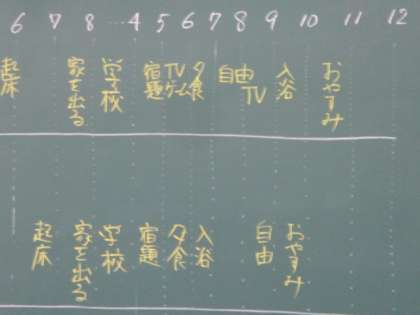 6 7 8 …4 5 6 7 8 9 10 11 12
起床
家を出る
学校
宿題
TVゲーム
夕食
自由TV
入浴
おやすみ
起床
家を出る
学校
宿題
夕食
入浴
自由
おやすみ